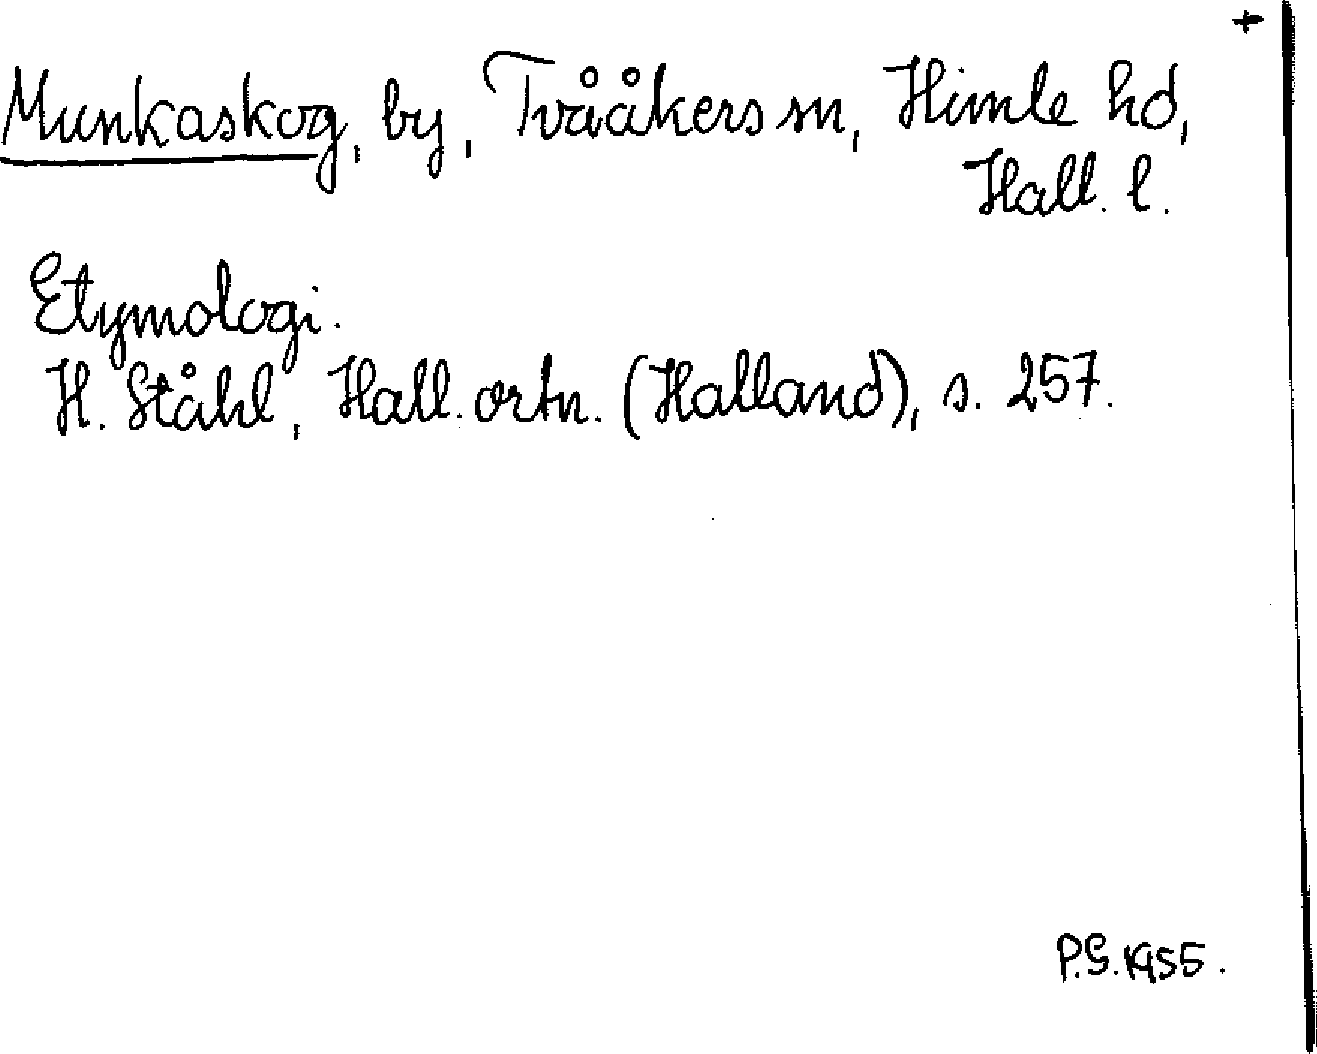 +
Munkaskog, by, Tvååkers sn, Himle hd,
Hall. l.
Etymologi.
H. Ståhl, Hall. ortn. (Halland), s. 257.
P.G. 1955.